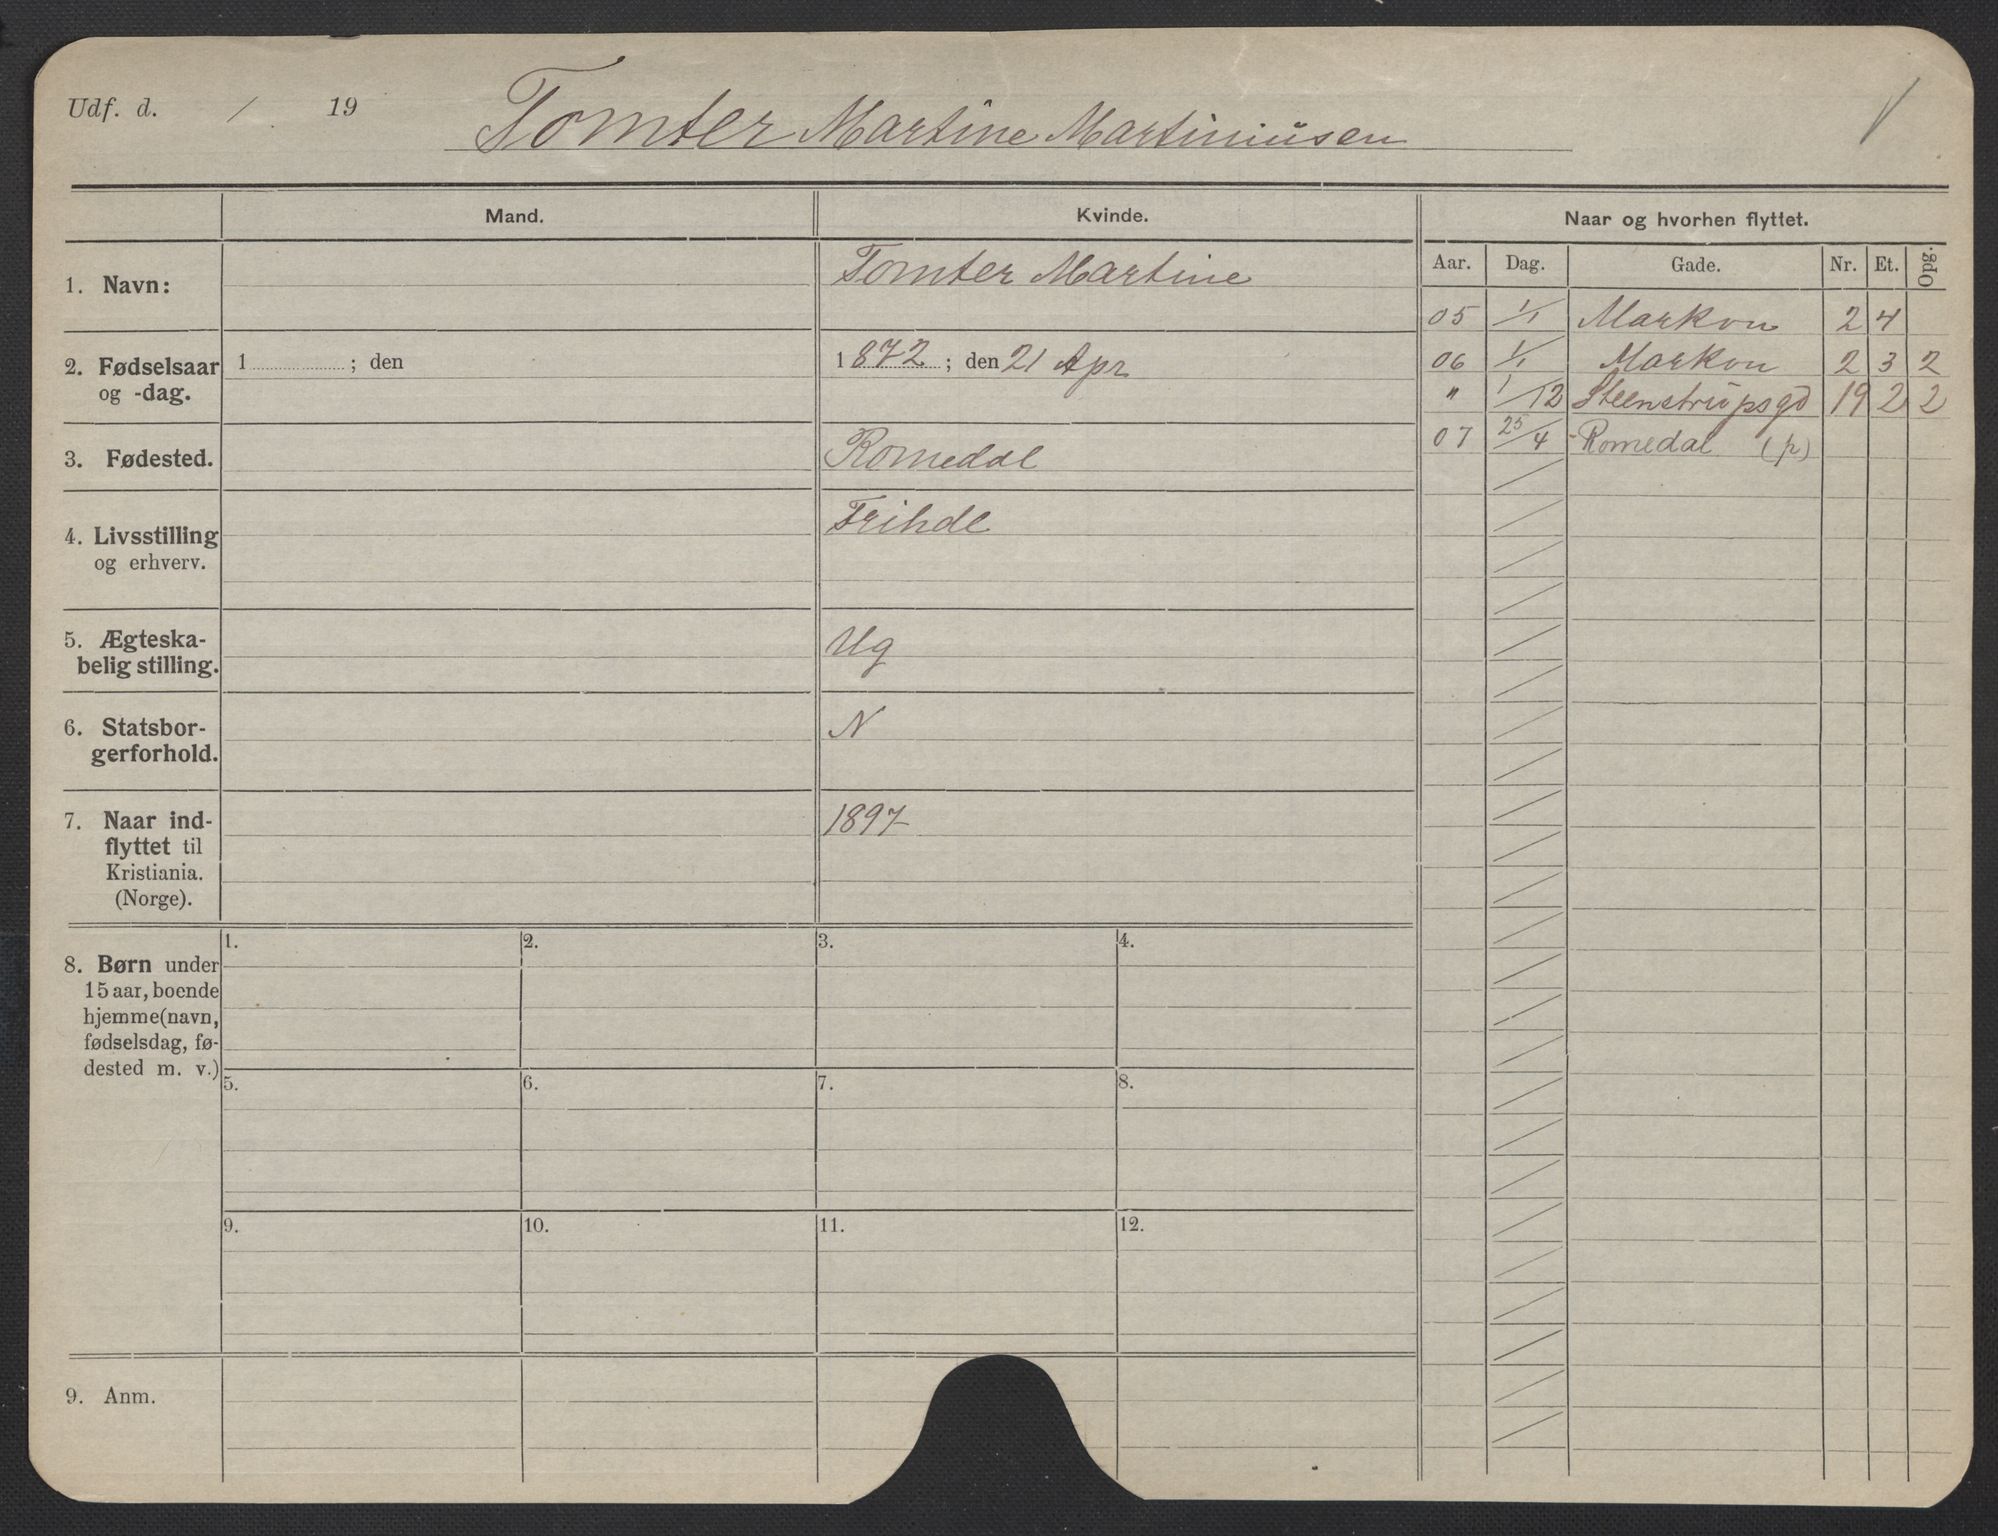 Udf. d. / 19
Tomter Martine Martiniusen
Mand. Kvinde. Naar og hvorhen flyttet.
Aar. Dag. Gade. Nr. Et. Opg.
1. Navn: Tomter Martine
05 1/1 Markvn 2 4
2. Fødselsaar 1 ; den 1872 ; den 21 Apr
og -dag.
06 1/1 Markvn 2 3 2
" 1/12 Steenstrupsgd 19 2 2
07 25/4 Romedal (p)
3. Fødested. Romedal
4. Livsstilling Frihdl
og erhverv.
5. Ægteska- Ug
belig stilling.
6. Statsbor- N
gerforhold.
7. Naar ind- 1897
flyttet til
Kristiania.
(Norge).
1. 2. 3. 4.
8. Børn under
15 aar, boende
hjemme (navn,
fødselsdag, fø-
dested m. v.)
5. 6. 7. 8.
9. 10. 11. 12.
9. Anm.